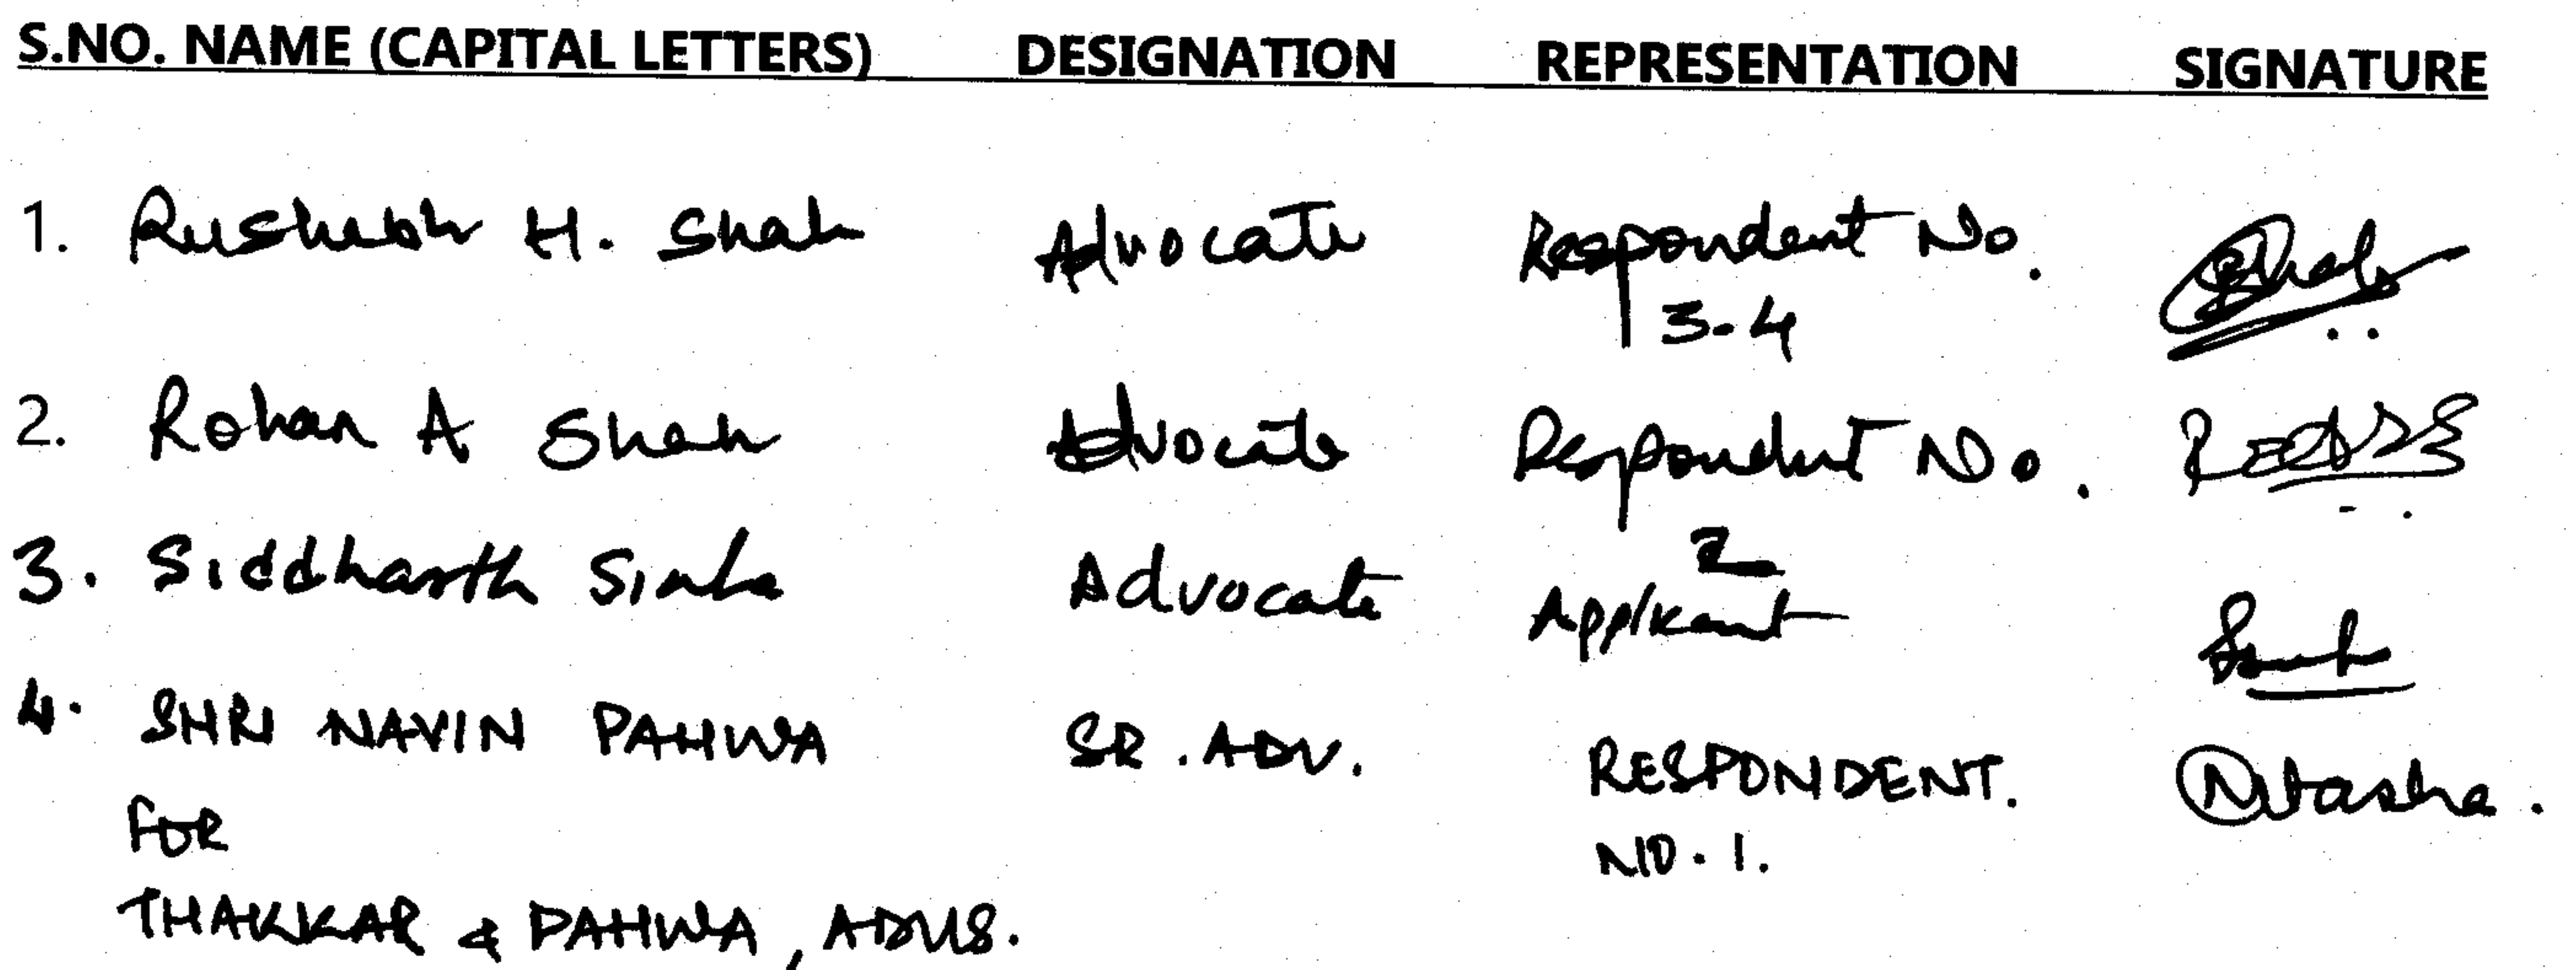 S.NO. NAME (CAPITAL LETTERS) DESIGNATION REPRESENTATION SIGNATURE
1. Rushabh H. Shah Advocate Respondent No.
3-4
2. Rohan A Shah Advocate Respondent No.
2
3. Siddharth Sinha Advocate Applicant
4. SHRI NAVIN PAHWA SR. ADV. RESPONDENT. Natasha.
FOR NO. 1.
THAKKAR & PAHWA, ADVS.